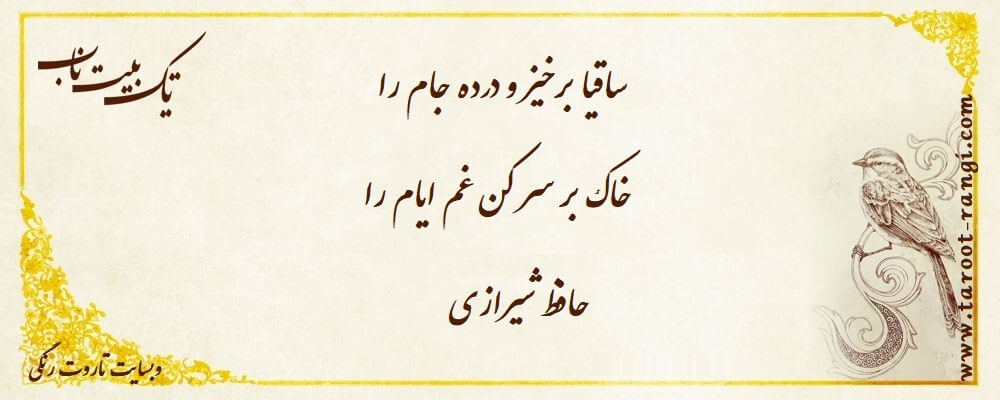 یک بیت ناب
ساقیا برخیز و درده جام را
خاک بر سر کن غم ایام را
حافظ شیرازی
وبسایت تاروت رنگی
www.taroot-rangi.com